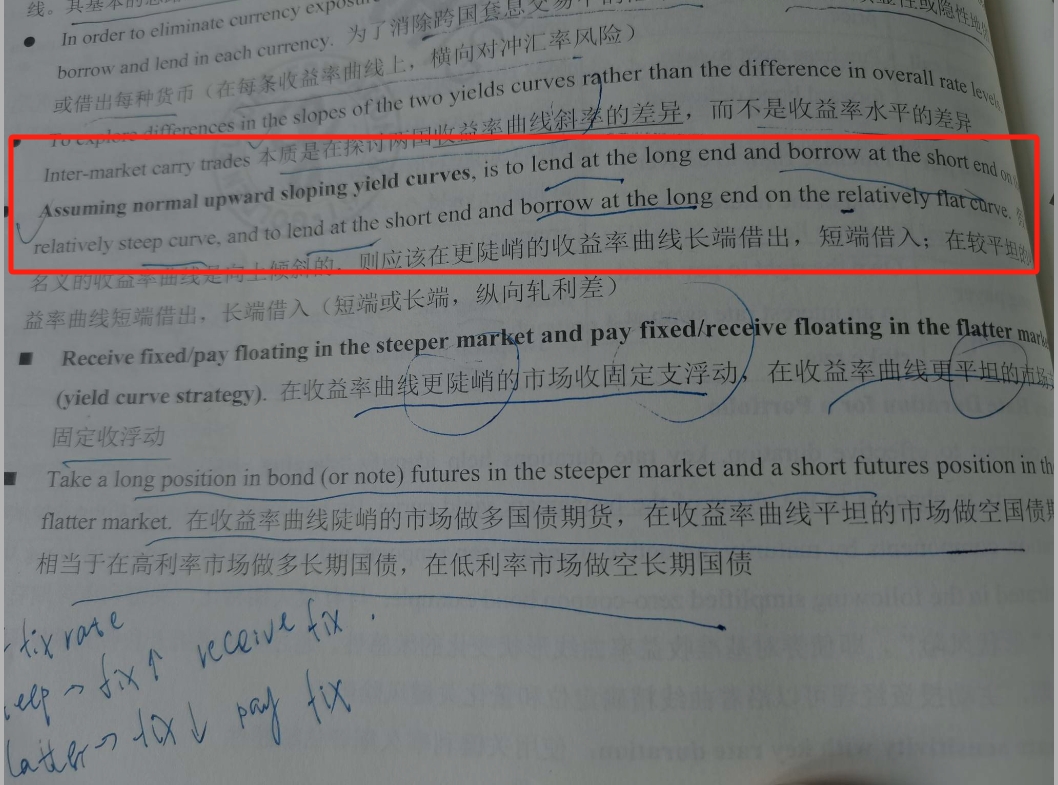 线。其基本的思
或隐性地
● In order to eliminate currency
borrow and lend in each currency. 为了消除跨国套息交易中的
或借出每种货币（在每条收益率曲线上，横向对冲汇率风险）
To explore differences in the slopes of the two yields curves rather than the difference in overall rate level
Inter-market carry trades 本质是在探讨两国收益率曲线斜率的差异，而不是收益率水平的差异
Assuming normal upward sloping yield curves, is to lend at the long end and borrow at the short end on
relatively steep curve, and to lend at the short end and borrow at the long end on the relatively flat curve.
名义的收益率曲线是向上倾斜的，则应该在更陡峭的收益率曲线长端借出，短端借入；在较平坦的
益率曲线短端借出，长端借入（短端或长端，纵向轧利差）
■ Receive fixed/pay floating in the steeper market and pay fixed/receive floating in the flatter mark
(yield curve strategy). 在收益率曲线更陡峭的市场收固定支浮动，在收益率曲线更平坦的市场
固定收浮动
■ Take a long position in bond (or note) futures in the steeper market and a short futures position in th
flatter market. 在收益率曲线陡峭的市场做多国债期货，在收益率曲线平坦的市场做空国债
相当于在高利率市场做多长期国债，在低利率市场做空长期国债
fix rate
eep → fix ↑ receive fix.
latter → fix ↓ pay fix